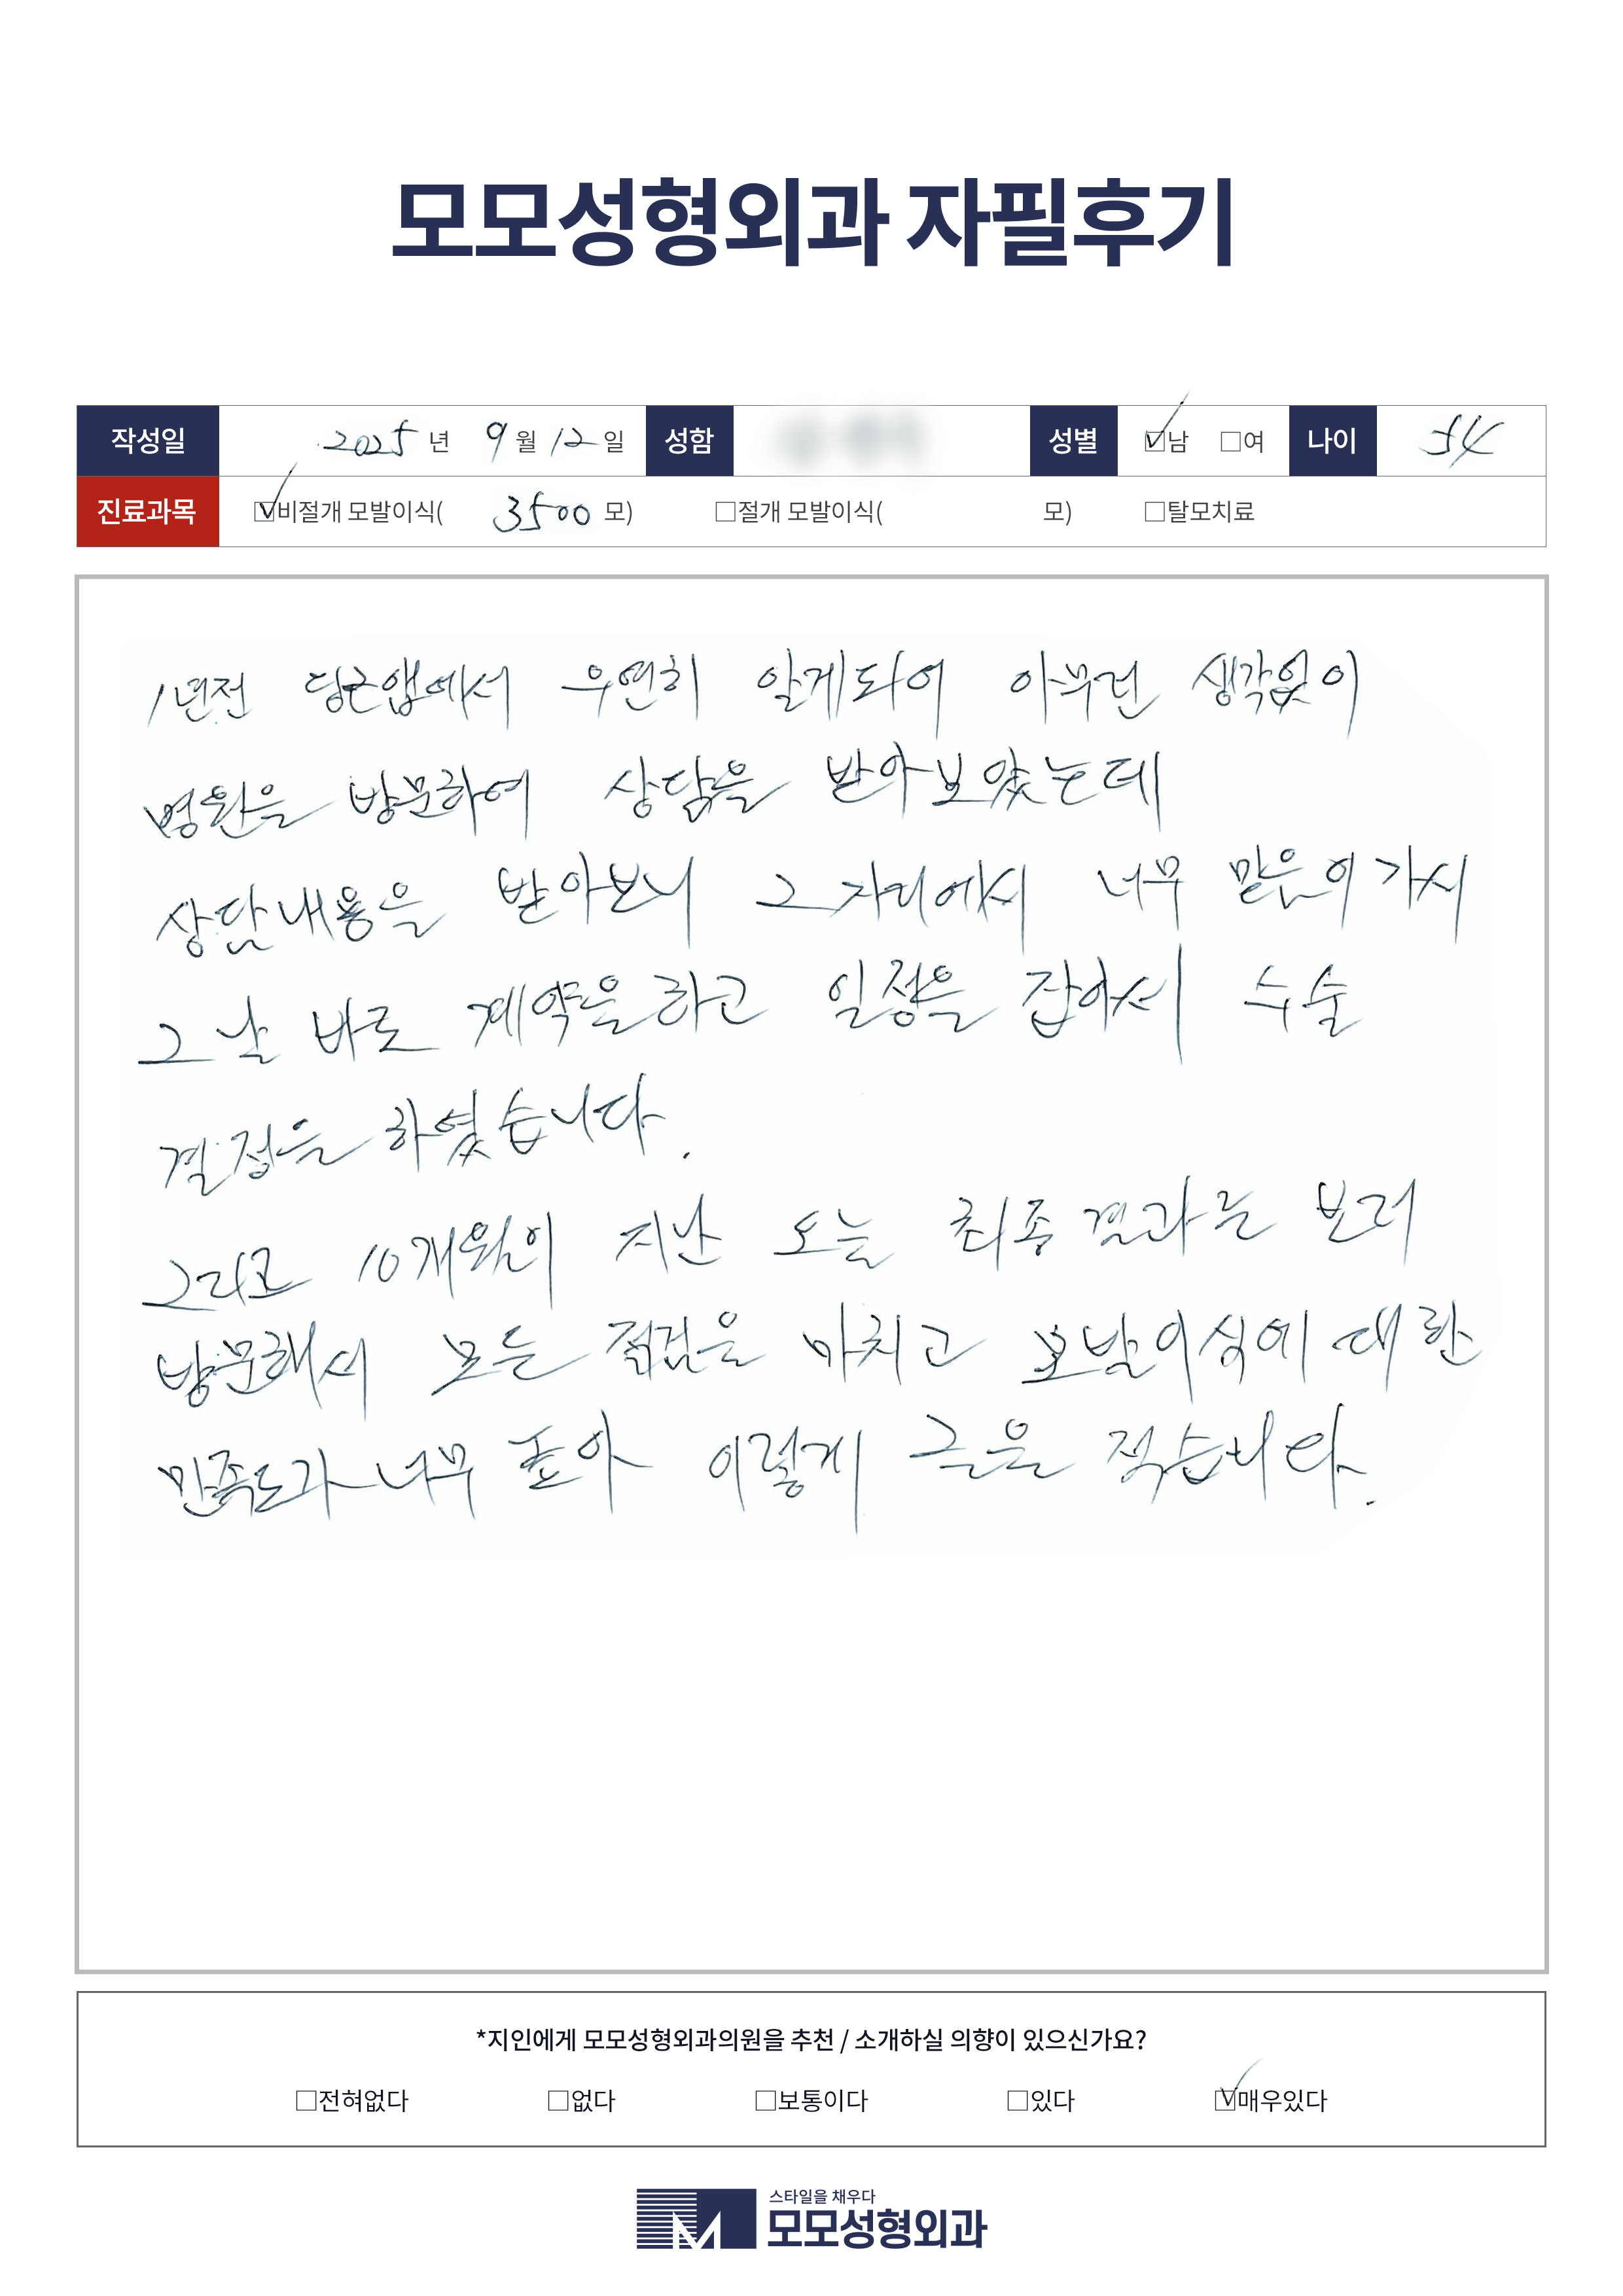 모모성형외과 자필후기
작성일 2025 년 9 월 12 일 성함 성별 ☑남 □여 나이 54
진료과목 ☑비절개 모발이식( 3500 모) □절개 모발이식( 모) □탈모치료
1년전 당근앱에서 우연히 알게되어 아무런 생각없이
병원을 방문하여 상담을 받아보았는데
상담내용을 받아보니 그자리에서 너무 믿음이가서
그날 바로 계약을하고 일정을 잡아서 수술
결정을 하였습니다.
그리고 10개월이 지난 오늘 최종결과를 보러
방문해서 모든 점검을 마치고 모발이식에 대한
만족도가 너무 좋아 이렇게 글을 적습니다.
*지인에게 모모성형외과의원을 추천 / 소개하실 의향이 있으신가요?
□전혀없다 □없다 □보통이다 □있다 ☑매우있다
스타일을 채우다
모모성형외과